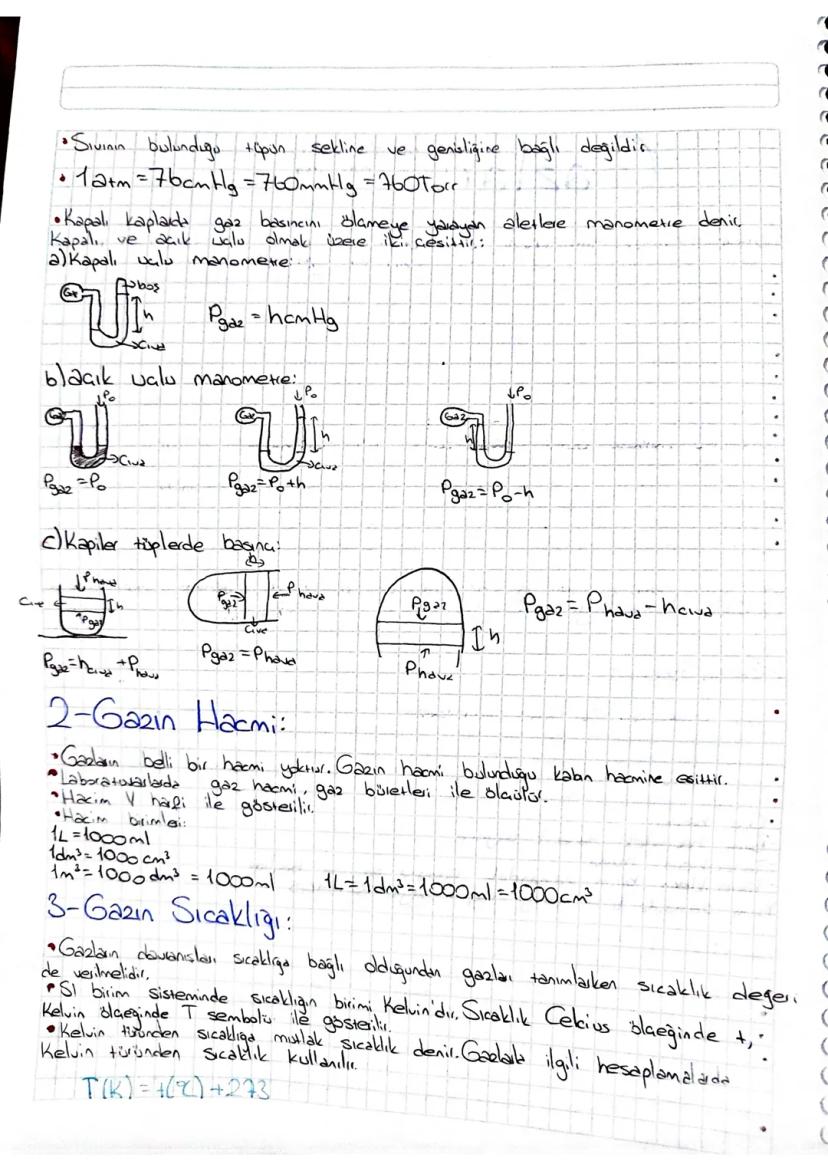 • Sıvının bulunduğu tüpün şekline ve genişliğine bağlı değildir
• 1atm = 76cmHg = 760mmHg = 760Torr
• Kapalı kaplarda gaz basıncını ölçmeye yarayan aletlere manometre denir.
Kapalı ve açık uçlu olmak üzere iki çeşittir:
a) Kapalı uçlu manometre:
Gaz
boş
h
Civa
Pgaz = hcmHg
b) açık uçlu manometre:
P₀
Gaz
Civa
Pgaz = P₀
P₀
Gaz
h
Civa
Pgaz = P₀+h
P₀
Gaz
h
Pgaz = P₀-h
c) Kapiler tüplerde basınç:
Phava
h
Pgaz
Pgaz = hcıva + Phava
h
Pgaz
Phava
Pgaz = Phava
Pgaz
h
Phava
Pgaz = Phava - hcıva
2-Gazın Hacmi:
• Gazların belli bir hacmi yoktur. Gazın hacmi bulunduğu kabın hacmine eşittir.
• Laboratuvarlarda gaz hacmi, gaz büretleri ile ölçülür.
• Hacim V harfi ile gösterilir.
• Hacim birimleri:
1L = 1000ml
1dm³ = 1000 cm³
1m³ = 1000 dm³ = 1000ml 1L = 1dm³ = 1000ml = 1000cm³
3-Gazın Sıcaklığı:
• Gazların davranışları sıcaklığa bağlı olduğundan gazları tanımlarken sıcaklık değeri
de verilmelidir.
• SI birim sisteminde sıcaklığın birimi Kelvin'dir. Sıcaklık Celcius ölçeğinde t,
Kelvin ölçeğinde T sembolü ile gösterilir.
• Kelvin türünden sıcaklığa mutlak sıcaklık denir. Gazlarla ilgili hesaplamalarda
Kelvin türünden sıcaklık kullanılır.
T(K) = t(°C) + 273